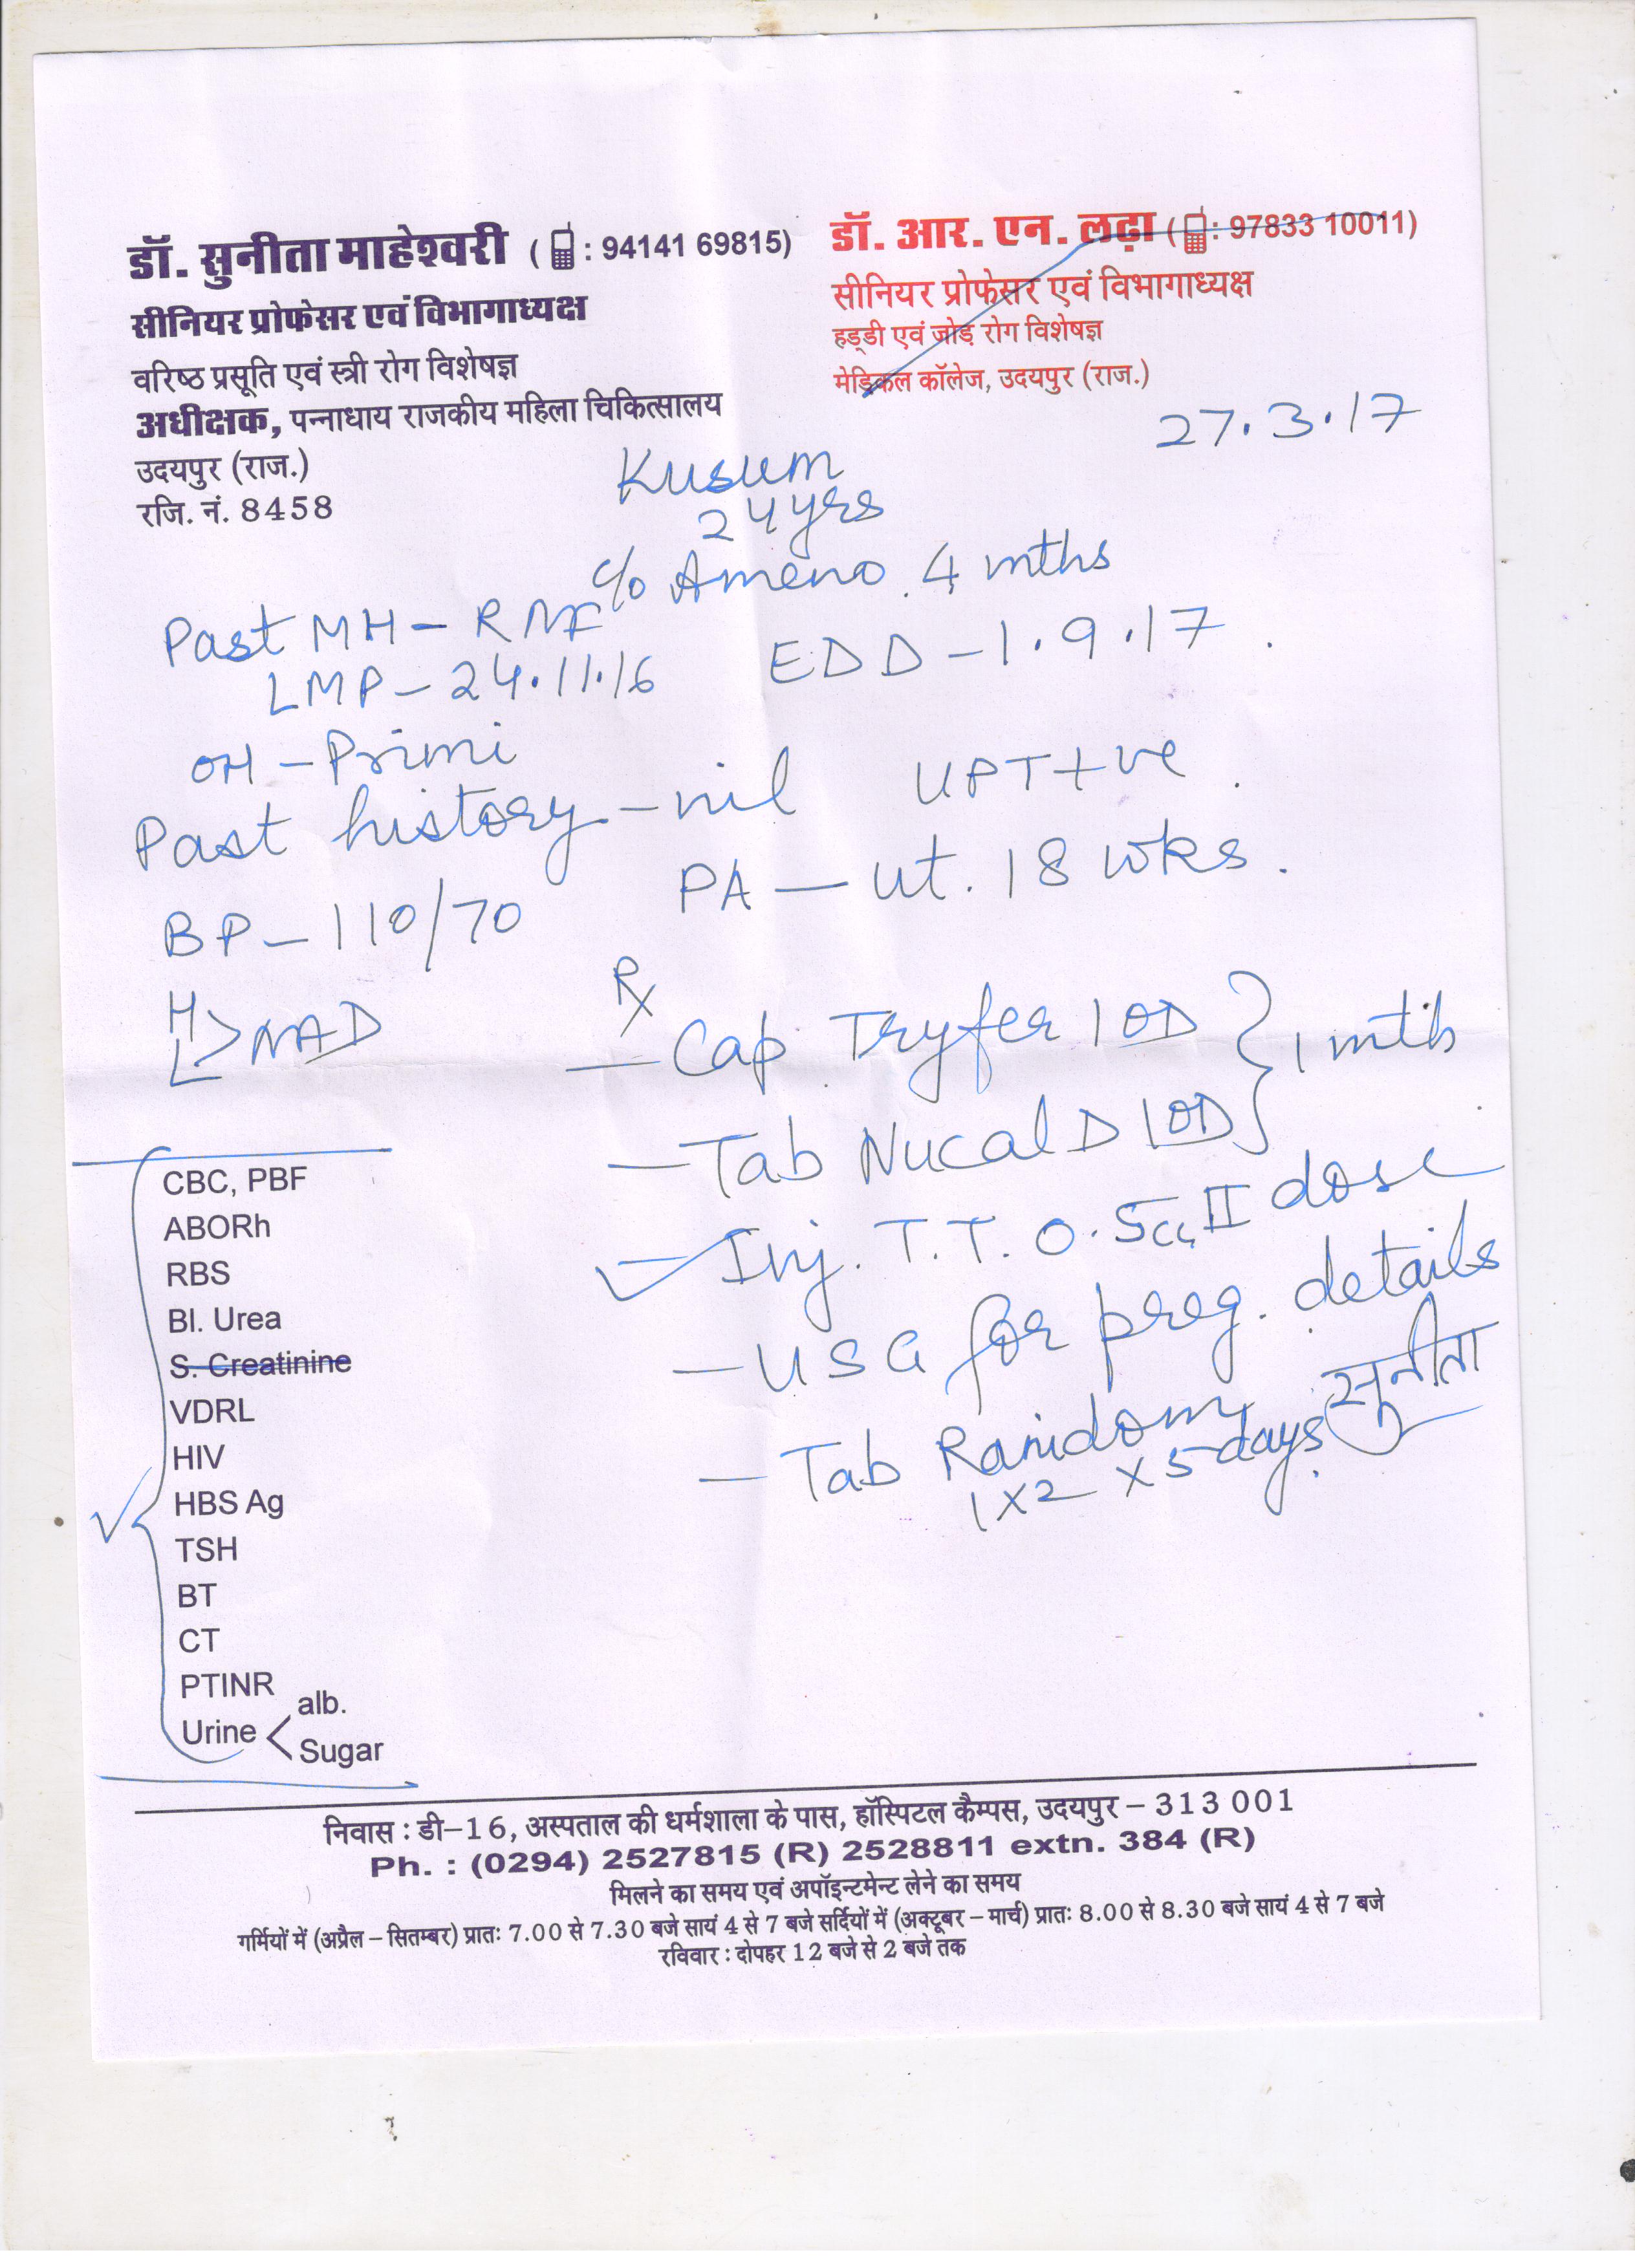 डॉ. सुनीता माहेश्वरी ( : 94141 69815)
सीनियर प्रोफेसर एवं विभागाध्यक्ष
वरिष्ठ प्रसूति एवं स्त्री रोग विशेषज्ञ
अधीक्षक, पन्नाधाय राजकीय महिला चिकित्सालय
उदयपुर (राज.)
रजि. नं. 8458
डॉ. आर. एन. लढ़ा ( : 97833 10011)
सीनियर प्रोफेसर एवं विभागाध्यक्ष
हड्डी एवं जोड़ रोग विशेषज्ञ
मेडिकल कॉलेज, उदयपुर (राज.)
27.3.17
Kusum
24yrs
c/o Ameno. 4 mths
Past MH - RNF
LMP - 24.11.16 EDD - 1.9.17.
OH - Primi
Past history - nil UPT +ve.
BP - 110/70 PA - ut. 18 wks.
H
L > NAD
Rx
- Cap. Tryfer 1 OD } 1 mth
- Tab Nucal D 1 OD
- Inj. T.T. 0.5cc II dose
- USG for preg. details
- Tab Ranidom
1x2 x 5 days
सुनीता
CBC, PBF
ABORh
RBS
Bl. Urea
S. Creatinine
VDRL
HIV
HBS Ag
TSH
BT
CT
PTINR
Urine < alb.
Sugar
निवास : डी-16, अस्पताल की धर्मशाला के पास, हॉस्पिटल कैम्पस, उदयपुर - 313 001
Ph. : (0294) 2527815 (R) 2528811 extn. 384 (R)
मिलने का समय एवं अपॉइन्टमेन्ट लेने का समय
गर्मियों में (अप्रैल - सितम्बर) प्रातः 7.00 से 7.30 बजे सायं 4 से 7 बजे सर्दियों में (अक्टूबर - मार्च) प्रातः 8.00 से 8.30 बजे सायं 4 से 7 बजे
रविवार : दोपहर 12 बजे से 2 बजे तक